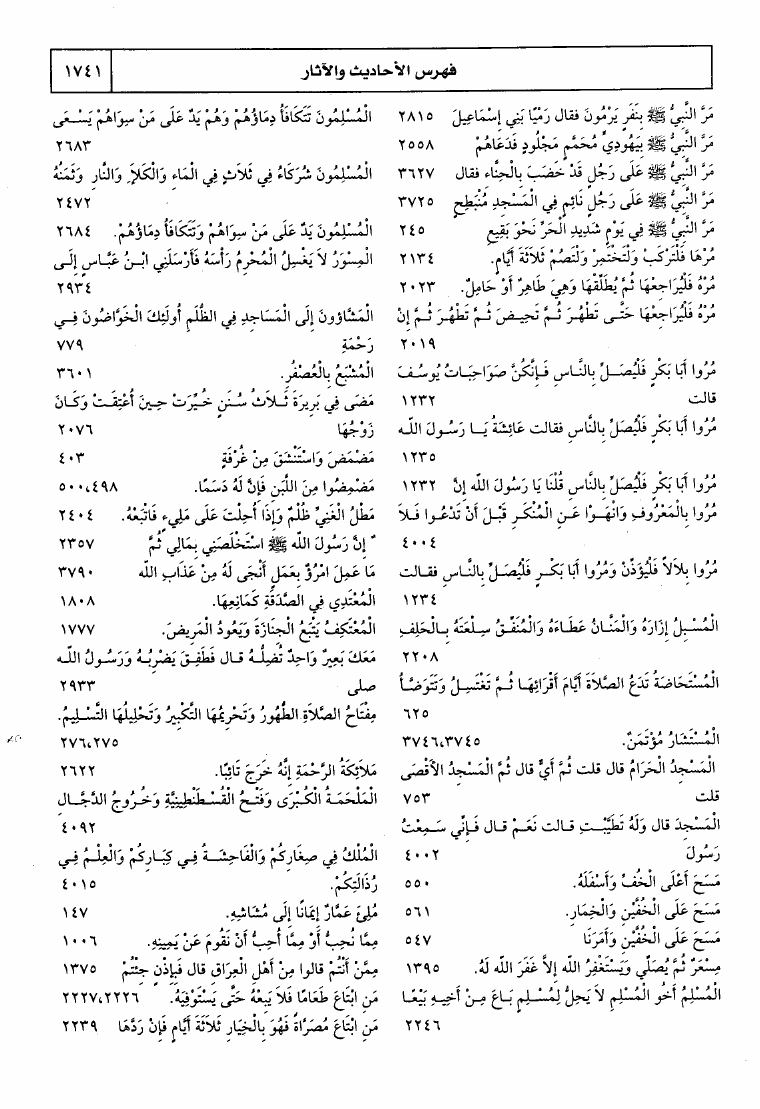 فهرس الأحاديث والآثار
١٧٤١
مَرَّ النَّبِيُّ ﷺ بِنَفَرٍ يَرْمُونَ فقال رَمْيًا بَنِي إِسْمَاعِيلَ ٢٨١٥
مَرَّ النَّبِيُّ ﷺ بِيَهُودِيٍّ مُحَمَّمٍ مَجْلُودٍ فَدَعَاهُمْ ٢٥٥٨
مَرَّ النَّبِيُّ ﷺ عَلَى رَجُلٍ قَدْ خَضَبَ بِالْحِنَّاء فقال ٣٦٢٧
مَرَّ النَّبِيُّ ﷺ عَلَى رَجُلٍ نَائِمٍ فِي الْمَسْجِدِ مُنْبَطِحٍ ٣٧٢٥
مَرَّ النَّبِيُّ ﷺ فِي يَوْمٍ شَدِيدِ الْحَرِّ نَحْوَ بَقِيعِ ٢٤٥
مُرْهَا فَلْتَرْكَبْ وَلْتَخْتَمِرْ وَلْتَصُمْ ثَلَاثَةَ أَيَّامٍ. ٢١٣٤
مُرْهُ فَلْيُرَاجِعْهَا ثُمَّ يُطَلِّقْهَا وَهِيَ طَاهِرٌ أَوْ حَامِلٌ. ٢٠٢٣
مُرْهُ فَلْيُرَاجِعْهَا حَتَّى تَطْهُرَ ثُمَّ تَحِيضَ ثُمَّ تَطْهُرَ ثُمَّ إِنْ
٢٠١٩
مُرُوا أَبَا بَكْرٍ فَلْيُصَلِّ بِالنَّاسِ فَإِنَّكُنَّ صَوَاحِبَاتُ يُوسُفَ
قالت ١٢٣٢
مُرُوا أَبَا بَكْرٍ فَلْيُصَلِّ بِالنَّاسِ فقالت عَائِشَةُ يَا رَسُولَ اللَّه
١٢٣٥
مُرُوا أَبَا بَكْرٍ فَلْيُصَلِّ بِالنَّاسِ قُلْنَا يَا رَسُولَ اللَّه إِنَّ ١٢٣٢
مُرُوا بِالْمَعْرُوفِ وَانْهَوْا عَنِ الْمُنْكَرِ قَبْلَ أَنْ تَدْعُوا فَلَا
٤٠٠٤
مُرُوا بِلَالًا فَلْيُؤَذِّنْ وَمُرُوا أَبَا بَكْرٍ فَلْيُصَلِّ بِالنَّاسِ فقالت
١٢٣٤
الْمُسْبِلُ إِزَارَهُ وَالْمَنَّانُ عَطَاءَهُ وَالْمُنَفِّقُ سِلْعَتَهُ بِالْحَلِفِ
٢٢٠٨
الْمُسْتَحَاضَةُ تَدَعُ الصَّلَاةَ أَيَّامَ أَقْرَائِهَا ثُمَّ تَغْتَسِلُ وَتَتَوَضَّأُ
٦٢٥
الْمُسْتَشَارُ مُؤْتَمَنٌ. ٣٧٤٦،٣٧٤٥
الْمَسْجِدُ الْحَرَامُ قال قلت ثُمَّ أَيٌّ قال ثُمَّ الْمَسْجِدُ الْأَقْصَى
قلت ٧٥٣
الْمَسْجِدَ قال وَلَهُ تَطَيَّبْتِ قالت نَعَمْ قال فَإِنِّي سَمِعْتُ
رَسُولَ ٤٠٠٢
مَسَحَ أَعْلَى الْخُفِّ وَأَسْفَلَهُ. ٥٥٠
مَسَحَ عَلَى الْخُفَّيْنِ وَالْخِمَارِ. ٥٦١
مَسَحَ عَلَى الْخُفَّيْنِ وَأَمَرَنَا ٥٤٧
مِسْعَرٌ ثُمَّ يُصَلِّي وَيَسْتَغْفِرُ اللَّه إِلَّا غَفَرَ اللَّه لَهُ. ١٣٩٥
الْمُسْلِمُ أَخُو الْمُسْلِمِ لَا يَحِلُّ لِمُسْلِمٍ بَاعَ مِنْ أَخِيهِ بَيْعًا
٢٢٤٦
الْمُسْلِمُونَ تَتَكَافَأُ دِمَاؤُهُمْ وَهُمْ يَدٌ عَلَى مَنْ سِوَاهُمْ يَسْعَى
٢٦٨٣
الْمُسْلِمُونَ شُرَكَاءُ فِي ثَلَاثٍ فِي الْمَاءِ وَالْكَلَإِ وَالنَّارِ وَثَمَنُهُ
٢٤٧٢
الْمُسْلِمُونَ يَدٌ عَلَى مَنْ سِوَاهُمْ وَتَتَكَافَأُ دِمَاؤُهُمْ. ٢٦٨٤
الْمِسْوَرُ لَا يَغْسِلُ الْمُحْرِمُ رَأْسَهُ فَأَرْسَلَنِي ابْنُ عَبَّاسٍ إِلَى
٢٩٣٤
الْمَشَّاؤُونَ إِلَى الْمَسَاجِدِ فِي الظُّلَمِ أُولَئِكَ الْخَوَّاضُونَ فِي
رَحْمَةِ ٧٧٩
الْمُشْبَعُ بِالْعُصْفُرِ. ٣٦٠١
مَضَى فِي بَرِيرَةَ ثَلَاثُ سُنَنٍ خُيِّرَتْ حِينَ أُعْتِقَتْ وَكَانَ
زَوْجُهَا ٢٠٧٦
مَضْمَضَ وَاسْتَنْشَقَ مِنْ غُرْفَةٍ ٤٠٣
مَضْمِضُوا مِنَ اللَّبَنِ فَإِنَّ لَهُ دَسَمًا. ٥٠٠،٤٩٨
مَطْلُ الْغَنِيِّ ظُلْمٌ وَإِذَا أُحِلْتَ عَلَى مَلِيءٍ فَاتْبَعْهُ. ٢٤٠٤
إِنَّ رَسُولَ اللَّه ﷺ اسْتَخْلَصَنِي بِمَالِي ثُمَّ ٢٣٥٧
مَا عَمِلَ امْرُؤٌ بِعَمَلٍ أَنْجَى لَهُ مِنْ عَذَابِ اللَّه ٣٧٩٠
الْمُعْتَدِي فِي الصَّدَقَةِ كَمَانِعِهَا. ١٨٠٨
الْمُعْتَكِفُ يَتْبَعُ الْجِنَازَةَ وَيَعُودُ الْمَرِيضَ. ١٧٧٧
مَعَكَ بَعِيرٌ وَاحِدٌ تُضِلُّهُ قال فَطَفِقَ يَضْرِبُهُ وَرَسُولُ اللَّه
صلى ٢٩٣٣
مِفْتَاحُ الصَّلَاةِ الطُّهُورُ وَتَحْرِيمُهَا التَّكْبِيرُ وَتَحْلِيلُهَا التَّسْلِيمُ.
٢٧٦،٢٧٥
مَلَائِكَةُ الرَّحْمَةِ إِنَّهُ خَرَجَ تَائِبًا. ٢٦٢٢
الْمَلْحَمَةُ الْكُبْرَى وَفَتْحُ الْقُسْطَنْطِينِيَّةِ وَخُرُوجُ الدَّجَّالِ
٤٠٩٢
الْمُلْكُ فِي صِغَارِكُمْ وَالْفَاحِشَةُ فِي كِبَارِكُمْ وَالْعِلْمُ فِي
رُذَالَتِكُمْ. ٤٠١٥
مُلِئَ عَمَّارٌ إِيمَانًا إِلَى مُشَاشِهِ. ١٤٧
مِمَّا نُحِبُّ أَوْ مِمَّا أُحِبُّ أَنْ نَقُومَ عَنْ يَمِينِهِ. ١٠٠٦
مِمَّنْ أَنْتُمْ قالوا مِنْ أَهْلِ الْعِرَاقِ قال فَبِإِذْنٍ جِئْتُمْ ١٣٧٥
مَنِ ابْتَاعَ طَعَامًا فَلَا يَبِعْهُ حَتَّى يَسْتَوْفِيَهُ. ٢٢٢٧،٢٢٢٦
مَنِ ابْتَاعَ مُصَرَّاةً فَهُوَ بِالْخِيَارِ ثَلَاثَةَ أَيَّامٍ فَإِنْ رَدَّهَا ٢٢٣٩